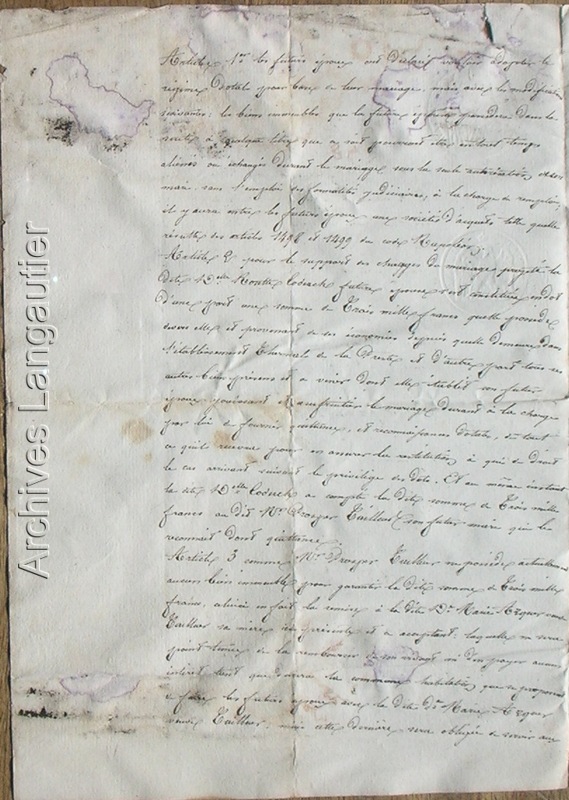 Article 1er les futurs époux ont déclaré vouloir adopter le
régime Dotal pour base de leur mariage, mais avec les modifications
suivantes: les biens immeubles que la future épouse possédera dans la
suite à quelque titre que ce soit pourront être en tout temps
aliénés ou échangés durant le mariage sous la seule autorisation de son
mari, sans l'emploi des formalités judiciaires, à la charge de remploi;
il y aura entre les futurs époux une société d'acquets telle quelle
résulte des articles 1498 et 1499 du code Napoléon
Article 2 pour le support des charges du mariage projeté la
dite Dlle future épouse s'est constituée en dot
d'une part une somme de Trois mille francs quelle possède
devers elle et provenant de ses économies depuis quelle demeure dans
l'établissement Thermal de la Preste et d'autre part tous ses
autres biens présens et à venir dont elle établit son futur
époux jouissant et usufruitier le mariage durant à la charge
par lui de fournir quittance, et reconnaissance dotale, du tout
ce qu'il recevra pour en assurer la restitution à qui de droit
le cas arrivant suivant le privilège des dots. Et au même instant
la dite Dlle a compté la dite somme de Trois mille
francs au dit Mr Prosper Tailleur son futur mari qui le
reconnait dont quittance
Article 3 comme Mr Prosper Tailleur ne possède actuellement
aucun bien immeuble pour garantir la dite somme de Trois mille
francs, celui-ci en fait la remise à la dite De Marie veuve
Tailleur sa mère ici présente et acceptant; laquelle ne sera
point tenue de la rembourser de son vivant ni d'en payer aucun
intérêt tant que durera la commune habitation que se proposent
de faire les futurs époux avec la dite De Marie
veuve Tailleur, mais cette dernière sera obligée de servir aux
Archives Langautier